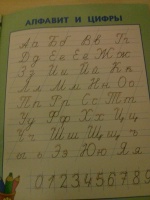 АЛФАВИТ И ЦИФРЫ
Аа Бб Вв Гг
Дд Ее Ёё Жж
Зз Ии Йй Кк
Лл Мм Нн Оо
Пп Рр Сс Тт
Уу Фф Хх Цц
Чч Шш Щщ ъ
ы ь Ээ Юю Яя
0 1 2 3 4 5 6 7 8 9